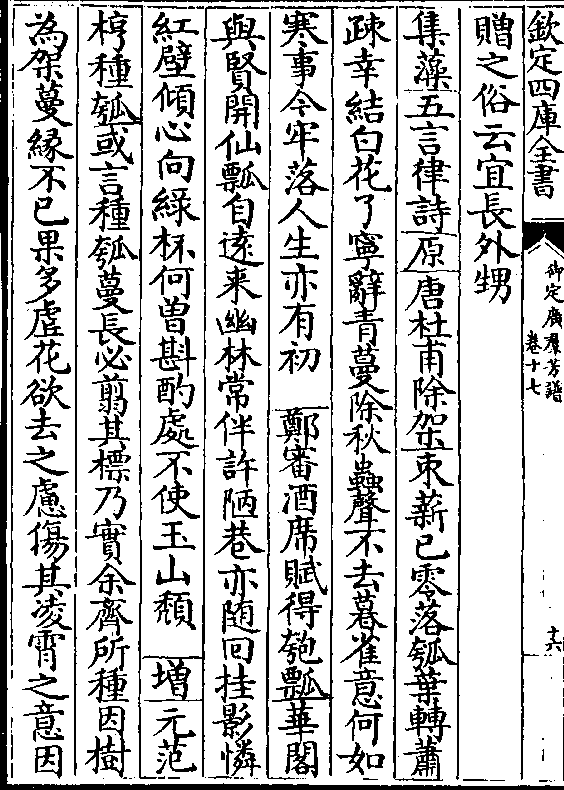 欽定四庫全書
御定廣羣芳譜
卷十七
十六
贈之俗云宜長外甥
集藻五言律詩原唐杜甫除架束薪已零落瓠葉轉蕭
疎幸結白花了寧辭青蔓除秋蟲聲不去暮雀意何如
寒事今牢落人生亦有初 鄭審酒席賦得匏瓢華閣
與賢開仙瓢自遠来幽林常伴許陋巷亦随回挂影憐
紅壁傾心向綠杯何曽斟酌處不使玉山頽 増元范
梈種瓠或言種瓠蔓長必翦其標乃實余齊所種因樹
為架蔓縁不已果多虚花欲去之慮傷其凌霄之意因